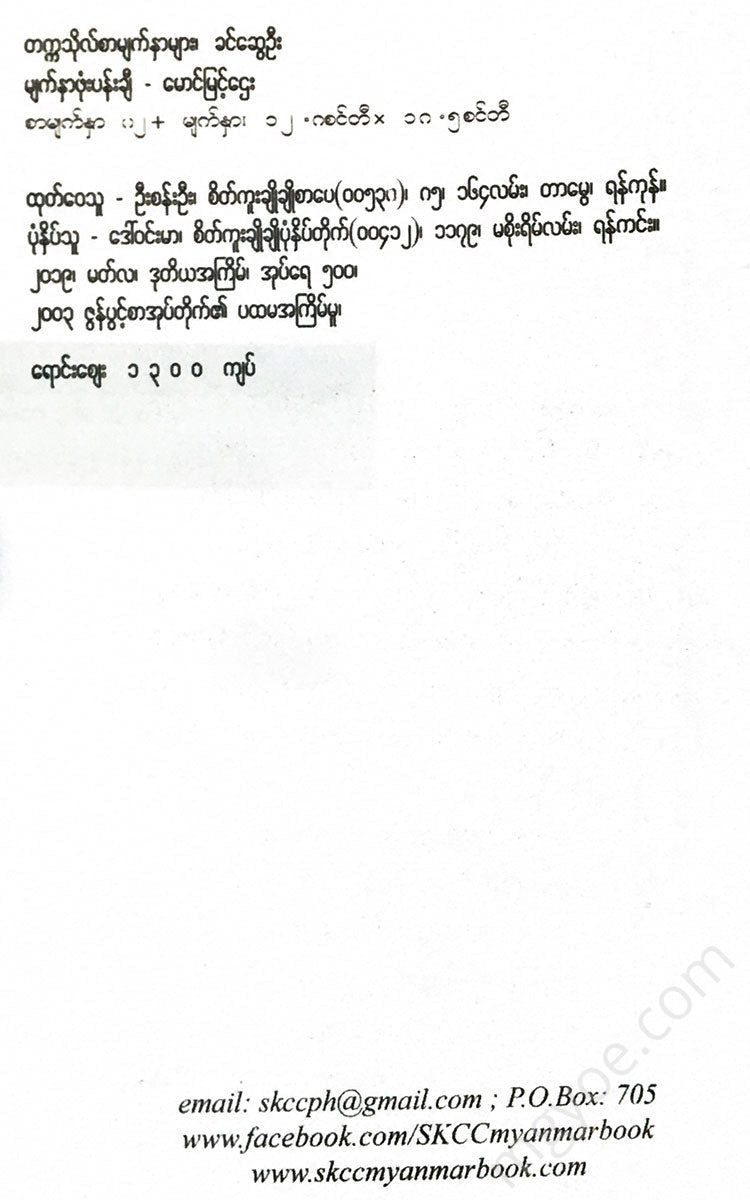 တက္ကသိုလ်စာမျက်နှာများ၊ ခင်ဆွေဦး
မျက်နှာဖုံးပန်းချီ - မောင်မြင့်ဌေး
စာမျက်နှာ ၈၂ + မျက်နှာ၊ ၁၂.၈စင်တီ × ၁၈.၅စင်တီ
ထုတ်ဝေသူ - ဦးစန်းဦး၊ စိတ်ကူးချိုချိုစာပေ(၀၀၅၃၈)၊ ၈၅၊ ၁၆၄လမ်း၊ တာမွေ၊ ရန်ကုန်။
ပုံနှိပ်သူ - ဒေါ်ဝင်းမာ၊ စိတ်ကူးချိုချိုပုံနှိပ်တိုက်(၀၀၄၁၂)၊ ၁၁၇၉၊ မစိုးရိမ်လမ်း၊ ရန်ကင်း။
၂၀၁၉၊ မတ်လ၊ ဒုတိယအကြိမ်၊ အုပ်ရေ ၅၀၀၊
၂၀၀၃ ဇွန်ပွင့်စာအုပ်တိုက်၏ ပထမအကြိမ်မူ၊
ရောင်းဈေး ၁ ၃ ၀ ၀ ကျပ်
mgyoe.com
email: skccph@gmail.com ; P.O.Box: 705
www.facebook.com/SKCCmyanmarbook
www.skccmyanmarbook.com